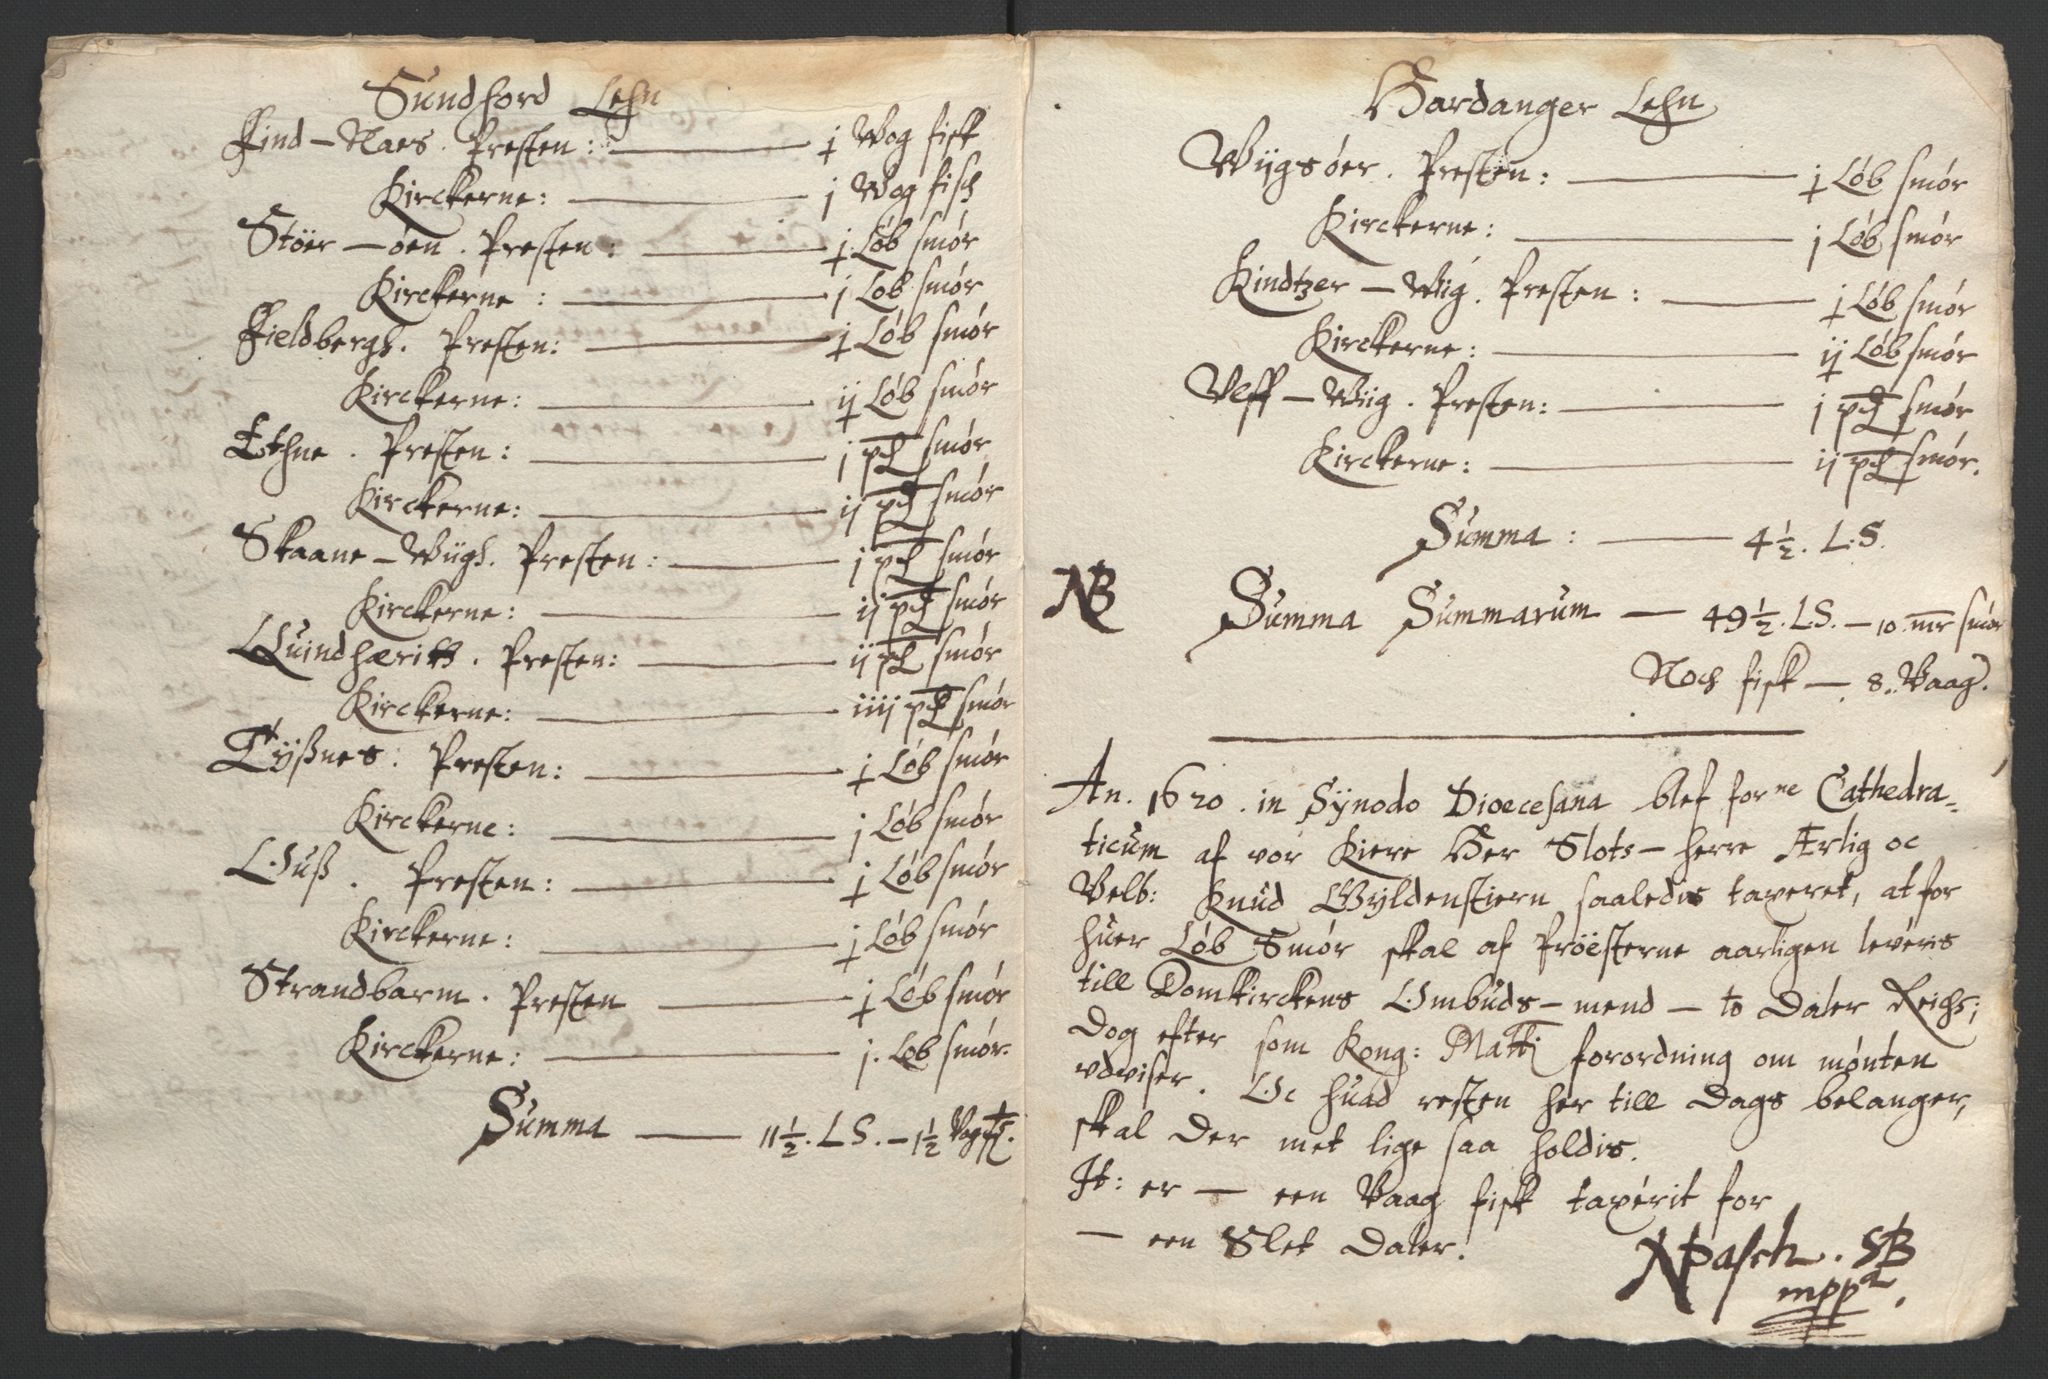 Sundhord Lehn
Find - Naes. Presten: j Wog fisk
Kirckerne: j Wog fisk
Stöer - öen. Presten: j Løb smør
Kirckerne: j Løb smør
Fieldbergh. Presten: j Løb smør
Kirckerne: ij Løb smør
Ethne. Presten: j pd smør
Kirckerne: ij pd smør
Skaane - Wiigh. Presten: j pd smør
Kirckerne: ij pd smør
Quindhæritt. Presten: ij pd smør
Kirckerne: iiij pd smør
Tÿßnes: Presten: j Løb smør
Kirckerne: j Løb smør
Ouß. Presten: j Løb smør
Kirckerne: j Løb smør
Strandbarm. Presten j Løb smør
Kirckerne: j. Løb smør.
Summa 11½. L S. - 1½ Vog f.
Hardanger Lehn
Wiigsöer. Presten: j Løb smør
Kirckerne: j Løb smør
Kindtzer - Wiig. Presten: j Løb smør
Kirckerne: ij Løb smør
Ulff - Wiig. Presten: j pd smør
Kirckerne: ij pd smør.
Summa: 4½. L. S.
NB Summa Summarum - 49½. L S. - 10 mr smør
Noch fisk - 8. Vaag.
An. 1620. in Sÿnodo Dioecesana blef forne Cathedra-
ticum af vor kiere Her Slots-herre Ærlig oc
Velb: Knud Gyldenstiern saaledis taxeret, at for
huer Løb Smør skal af Pröesterne aarligen leveris
till Domkirckens Ombuds-mend - to Daler Reichs;
Dog efter som Kong: Matti forordning om mønten
vdviser. Oc huad resten her till Dags belanger,
skal der met lige saa holdis.
It: er - een Vaag fisk taxerit for
- een Slet Daler.
NPasch. SB
mppa.